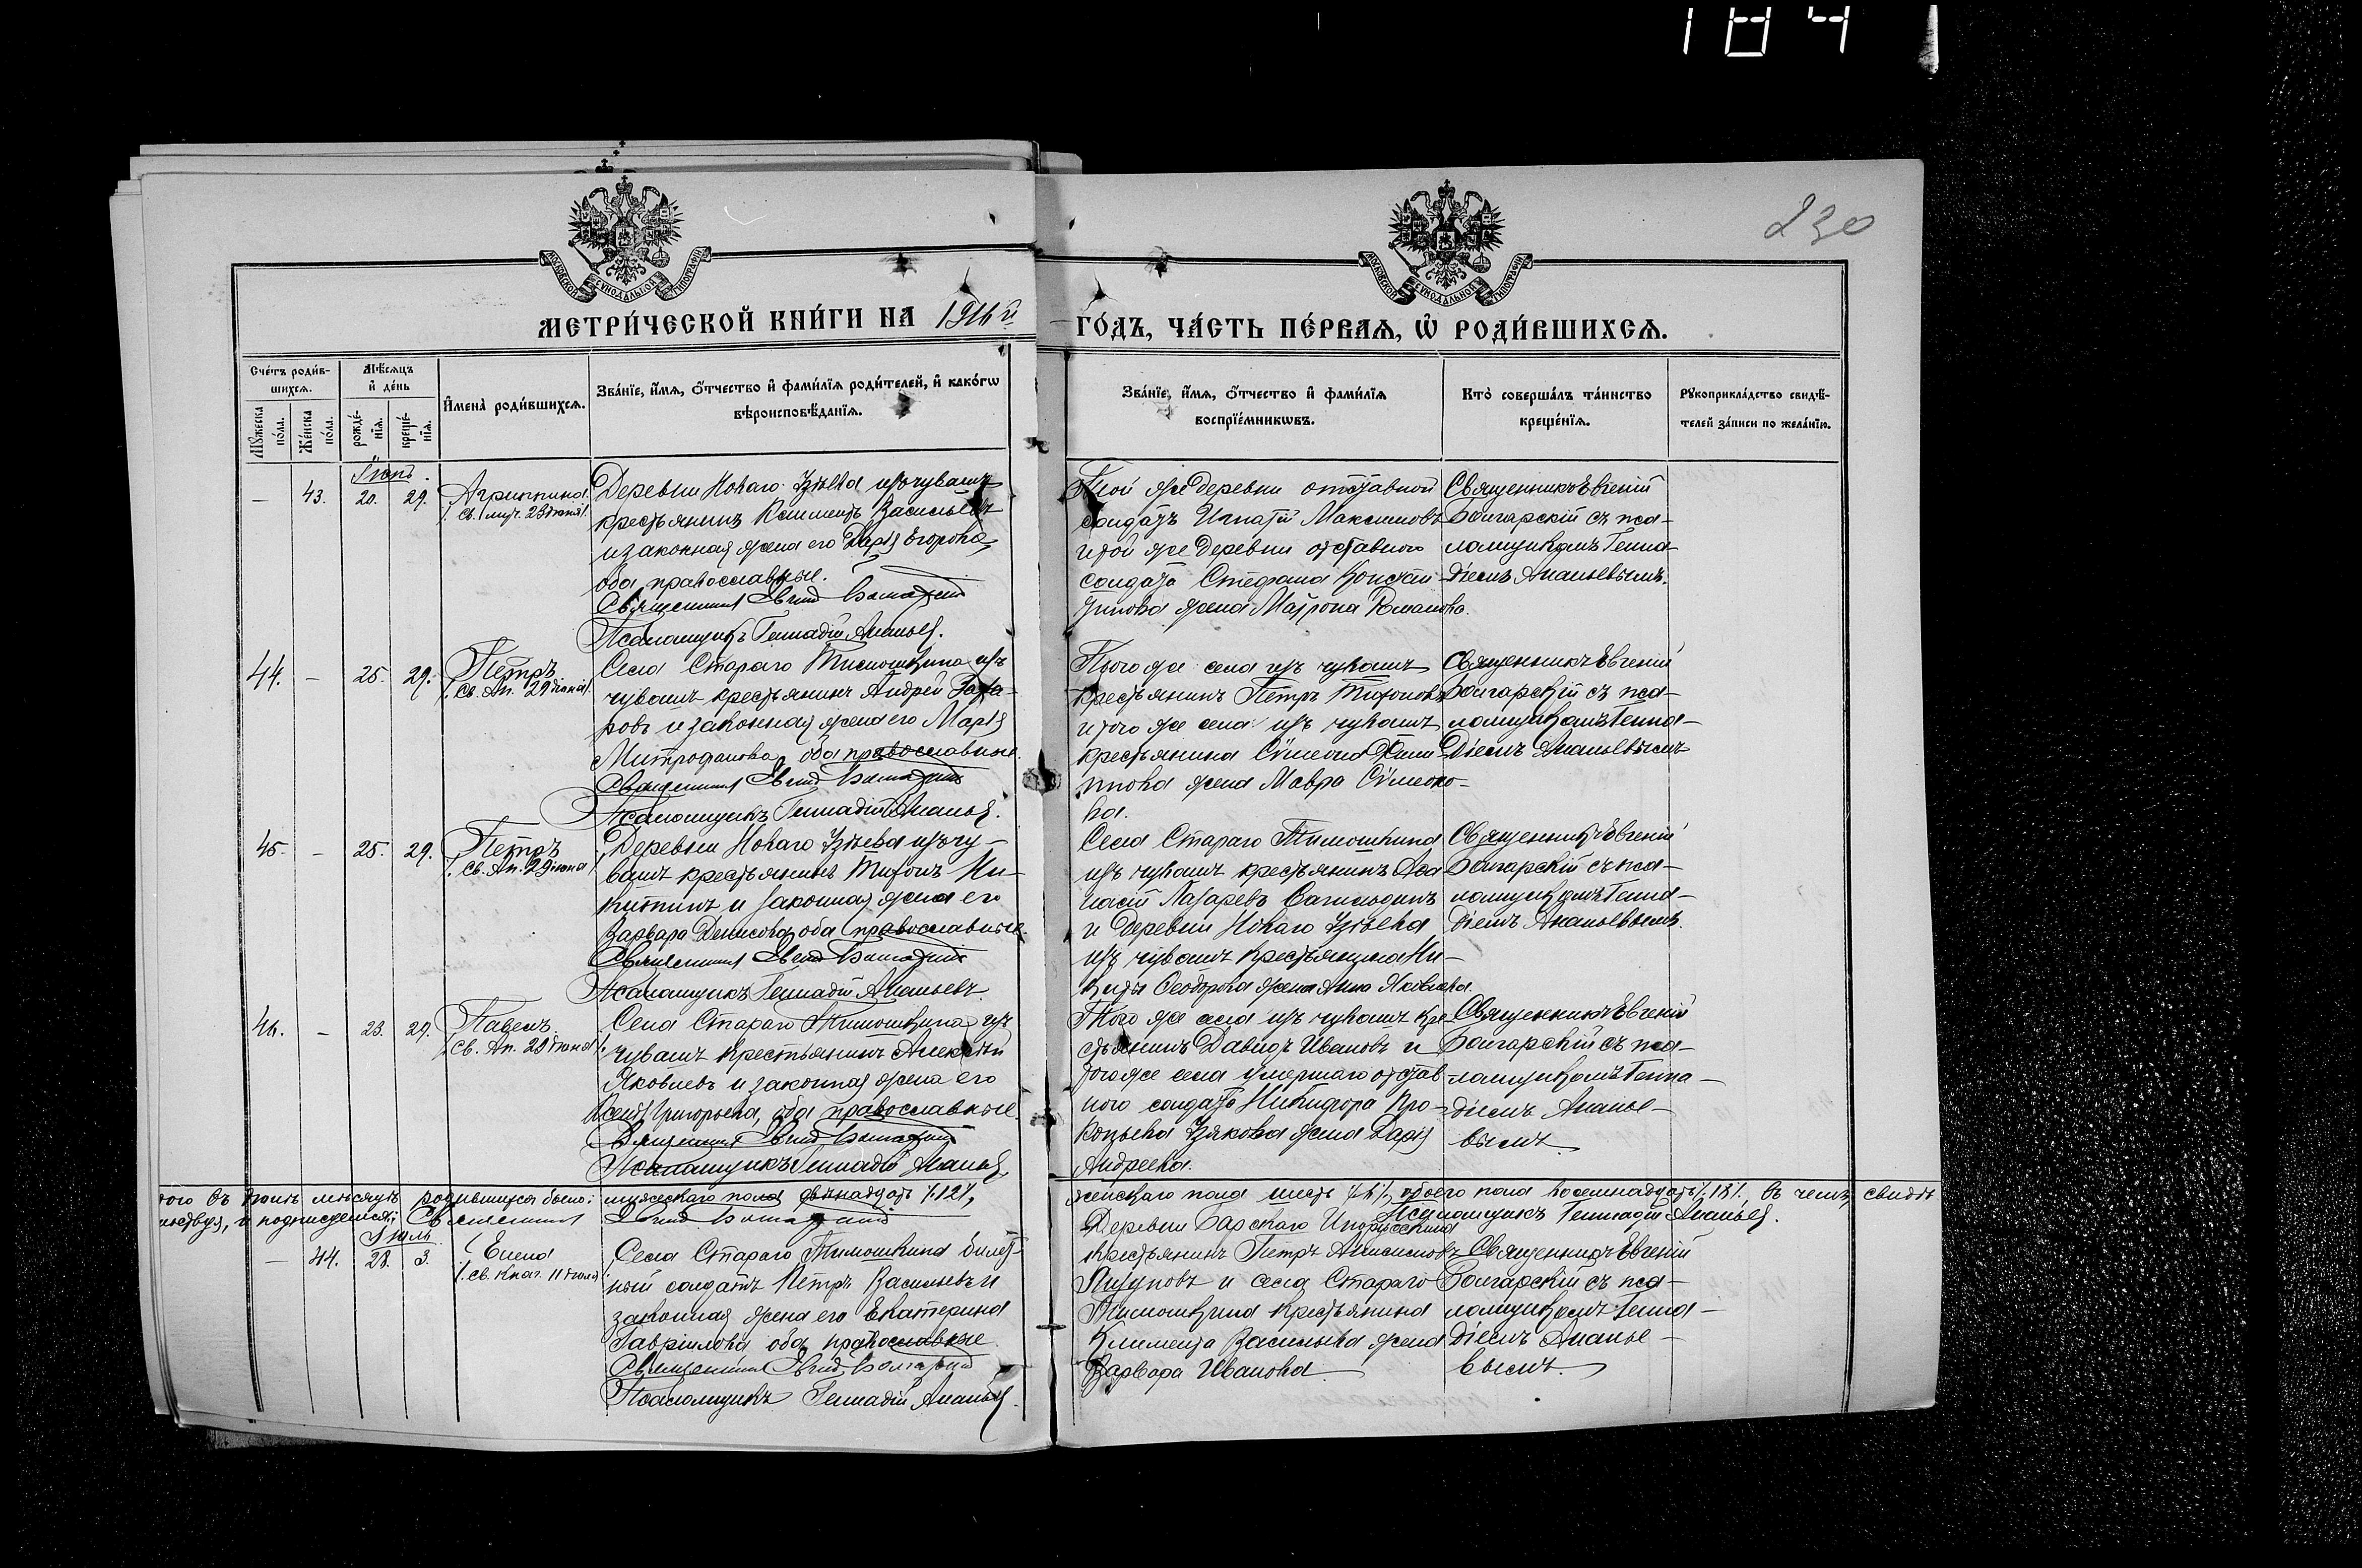 1841
230
МОСКОВСКОЙ СѴНОДАЛЬНОЙ ТИПОГРАФІИ
МОСКОВСКОЙ СѴНОДАЛЬНОЙ ТИПОГРАФІИ
МЕТРИ́ЧЕСКОЙ КНИ́ГИ НА 1916й
ГО́ДЪ, ЧА́СТЬ ПЕ́РВАѦ, Ѡ҆ РОДИ́ВШИХСѦ.
Сче́тъ роди́в-
шихсѧ.
Мꙋ́жеска
по́ла.
Же́нска
по́ла.
Мѣ́сѧцъ
и҆ де́нь
рожде́-
нїѧ.
креще́-
нїѧ.
И҆мена̀ роди́вшихсѧ.
Зва́нїе, и҆́мѧ, ѻ҆́тчество и҆ фами́лїѧ роди́телей, и҆ како́гѡ
вѣроисповѣ́данїѧ.
Зва́нїе, и҆́мѧ, ѻ҆́тчество и҆ фами́лїѧ
воспрїе́мникѡвъ.
Кто̀ соверша́лъ та́инство
креще́нїѧ.
Рꙋкоприкла́дство свидѣ́-
телей за́писи по жела́нїю.
Іюнь.
— 43. 20. 29.
Агриппина
/. св. муч. 23 іюня/.
Деревни Новаго Узѣева изъ чувашъ
крестьянинъ Климентъ Васильевъ
и законная жена его Дарія Егорова,
оба православные.
Священникъ Евгеній Болгарскій
Псаломщикъ Геннадій Ананьев.
Той же деревни отставной
солдатъ Игнатій Максимовъ
и той же деревни отставного
солдата Стефана Констан-
тинова жена Матрона Романова.
Священникъ Евгеній
Болгарскій съ пса-
ломщикомъ Генна-
діемъ Ананьевымъ.
44. — 25. 29.
Петръ
/. Св. Ап. 29 іюня/.
Села Стараго Тимошкина изъ
чувашъ крестьянинъ Андрей Заха-
ровъ и законная жена его Марія
Митрофанова, оба православные.
Священникъ Евгеній Болгарскій
Псаломщикъ Геннадій Ананьев.
Того же села изъ чувашъ
крестьянинъ Петръ Тихоновъ
и того же села изъ чувашъ
крестьянина Сѵмеона
жена Мавра Сѵмеоно-
ва.
Священникъ Евгеній
Болгарскій съ пса-
ломщикомъ Генна-
діемъ Ананьевымъ
45. — 25. 29.
Петръ
/. Св. Ап. 29 іюня/.
Деревни Новаго Узѣева изъ чу-
вашъ крестьянинъ Тихонъ Ни-
китинъ и законная жена его
Варвара Денисова, оба православные.
Священникъ Евгеній Болгарскій
Псаломщикъ Геннадій Ананьевъ
Села Стараго Тимошкина
изъ чувашъ крестьянинъ Аѳа-
насій Лазаревъ
и деревни Новаго Узѣева
изъ чувашъ крестьянина Ни-
киты Ѳеодорова жена Анна Яковлева.
Священникъ Евгеній
Болгарскій съ пса-
ломщикомъ Генна-
діемъ Ананьевымъ.
46. — 23. 29.
Павелъ
/. св. Ап. 29 іюня/.
Села Стараго Тимошкина изъ
чувашъ крестьянинъ Алексѣй
Яковлевъ и законная жена его
Григорьева, оба православные
Священникъ Евгеній Болгарскій
Псаломщикъ Геннадій Ананьев.
Того же села изъ чувашъ кре-
стьянинъ Давидъ Ивановъ и
того же села умершаго отстав-
ного солдата Никифора Про-
копьева жена Дарія
Андреева.
Священникъ Евгеній
Болгарскій съ пса-
ломщикомъ Генна-
діемъ Ананье-
вымъ
того въ Іюнь мѣсяцѣ родившихся было: мужескаго пола двѣнадцать /.12/., женскаго пола шесть /.6/., обоего пола восемнадцать /.18/. въ чемъ, свидѣ
тельствуя, и подписуемся: Священникъ Евгеній Болгарскій Псаломщикъ Геннадій Ананьев.
Іюль
— 44. 28. 3.
Елена
/. Св. Княг. 11 іюля/.
Села Стараго Тимошкина билет-
ный солдатъ Петръ Васильевъ и
законная жена его Екатерина
Гавріилова, оба православные
Священникъ Евгеній Болгарскій
Псаломщикъ Геннадій Ананьев.
Деревни Барскаго
крестьянинъ Петръ
и села Стараго
Тимошкина крестьянина
Климента Васильева жена
Варвара Иванова
Священникъ Евгеній
Болгарскій съ пса-
ломщикомъ Генна-
діемъ Ананье-
вымъ.